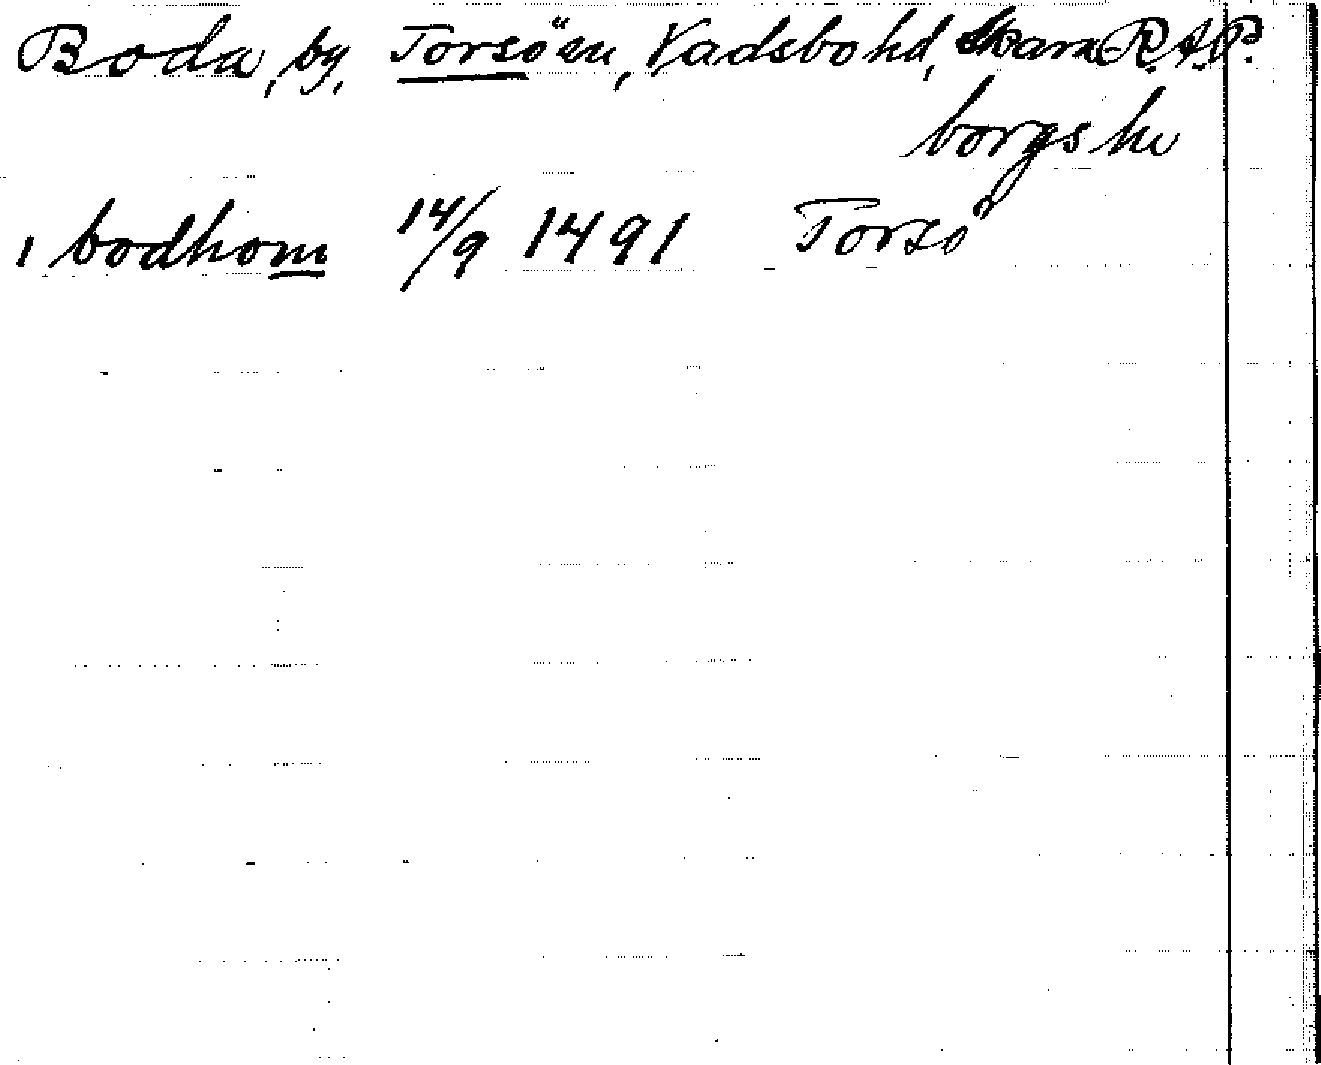 Boda, by, Torsö sn, Vadsbo hd, Skara- R.A.P.
borgs län
i bodhom 14/9 1491 Torsö